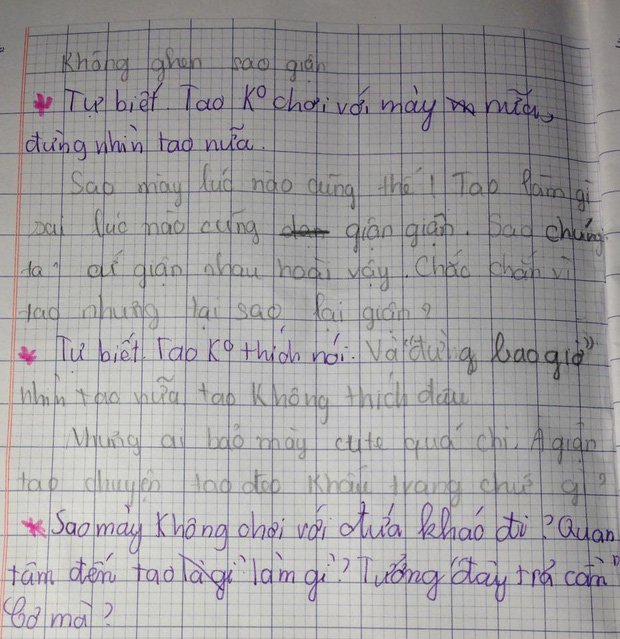 Không ghen sao giận
* Tự biết. Tao K° chơi với mày nữa,
đừng nhìn tao nữa.
Sao mày lúc nào cũng thế! Tao làm gì
lúc nào cũng giận giận. Sao chúng
ta cứ giận nhau hoài vậy. Chắc chắn vì
tao nhưng tại sao lại giận?
* Tự biết. Tao K° thích nói. Và "đừng bao giờ"
nhìn tao nữa tao Không thích đâu
Nhưng ai bảo mày cute quá chi. A giận
tao chuyện tao đeo Khẩu trang chứ gì?
* Sao mày Không chơi với đứa Kháo đi? Quan
tâm đến tao làgì làm gì? Tưởng đây trả cảm"
Bơ mà?